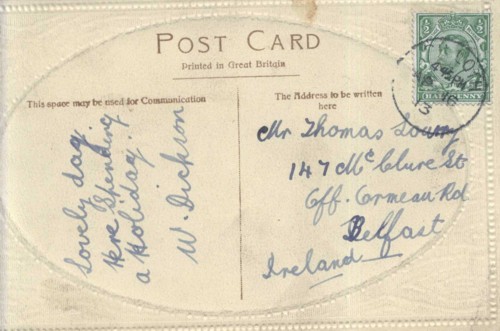 POST CARD
Printed in Great Britain
This space may be used for Communication
The Address to be written
here
Lovely day.
Here Spending
a Holiday.
W. Dickson
Mr Thomas Lowry
147 Mc Clure St
Off. Ormeau Rd
Belfast
Ireland
½ ½
HALFPENNY
13